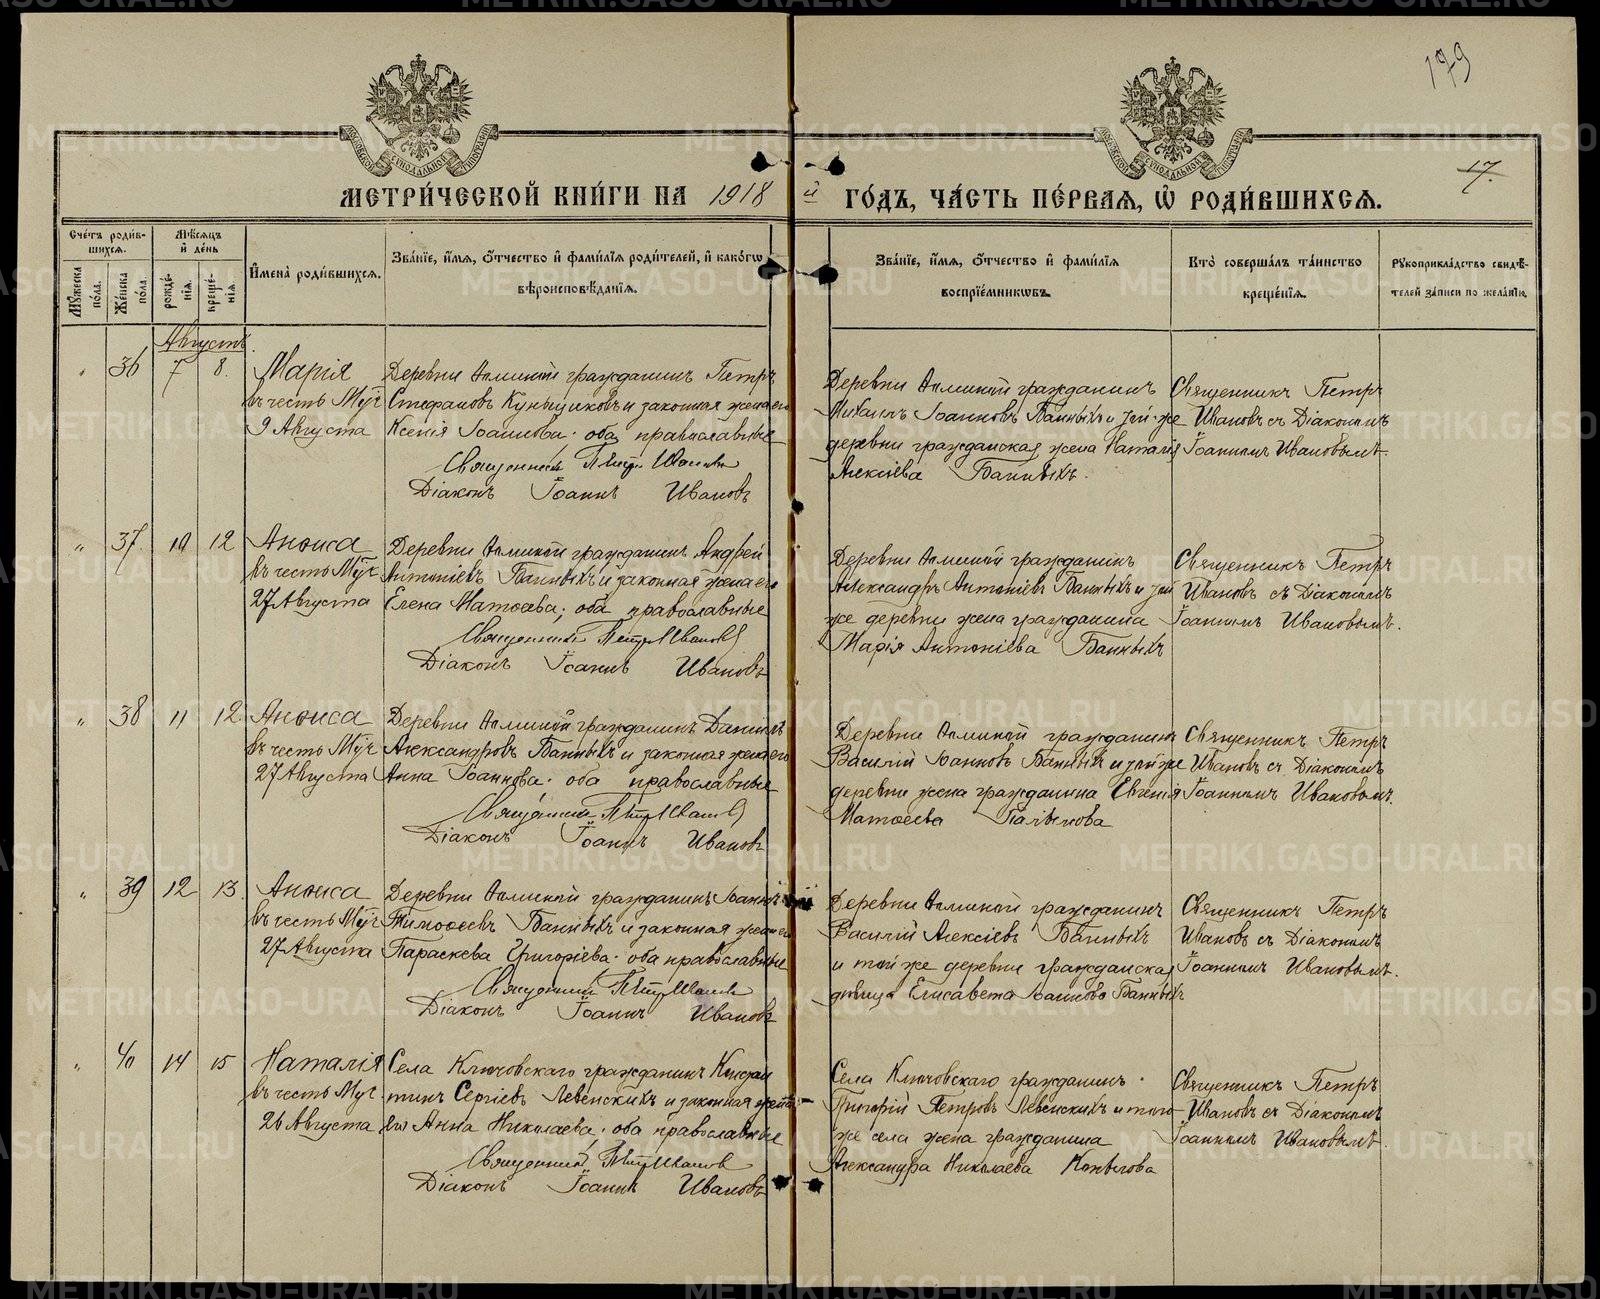 179
17.
МЕТРИ́ЧЕСКОЙ КНИ́ГИ НА 1918 й ГО́ДЪ, ЧА́СТЬ ПЕ́РВАЯ, Ѽ РОДИ́ВШИХСЯ.
Сче́тъ роди́вшихся.
Му́жеска по́ла.
Же́нска по́ла.
Мѣ́сяцъ и де́нь
рожде́нія.
креще́нія.
И҆мена̀ роди́вшихся.
Зва́ніе, и҆́мя, ѻ҆́тчество и҆ фами́лія роди́телей, и҆ како́гѡ вѣроисповѣ́данія.
Зва́ніе, и҆́мя, ѻ҆́тчество и҆ фами́лія воспріе́мникѡвъ.
Кто̀ соверша́лъ та́инство креще́нія.
Рꙋкоприкла́дство свидѣ́телей за́писи по жела́нію.
Августъ.
" 36 7 8.
Марія
въ честь Муч
9 Августа
Деревни гражданинъ Петръ
Стефановъ и законная жена его
Ксенія Іоаннова. оба православные
Священникъ Петръ Ивановъ
Діаконъ Іоаннъ Ивановъ
Деревни гражданинъ
Михаилъ Іоанновъ Банныхъ и той-же
деревни гражданская жена Наталія
Алексіева Банныхъ.
Священникъ Петръ
Ивановъ съ Діакономъ
Іоанномъ Ивановымъ.
" 37. 10 12
Анѳиса
въ честь Муч
27 Августа
Деревни гражданинъ Андрей
Антоніевъ Банныхъ и законная жена его
Елена Матѳеева; оба православные
Священникъ Петръ Ивановъ
Діаконъ Іоаннъ Ивановъ
Деревни гражданинъ
Александръ Антоніевъ Банныхъ и той
же деревни жена гражданина
Марія Антоніева Банныхъ
Священникъ Петръ
Ивановъ съ Діакономъ
Іоанномъ Ивановымъ.
" 38 11 12.
Анѳиса
въ честь Муч
27 Августа
Деревни гражданинъ Даніилъ
Александровъ Банныхъ и законная жена его
Анна Іоаннова. оба православные
Священникъ Петръ Ивановъ
Діаконъ Іоаннъ Ивановъ
Деревни гражданинъ
Василій Іоанновъ Банныхъ и той же
деревни жена гражданина Евгенія
Матѳеева
Священникъ Петръ
Ивановъ съ Діакономъ
Іоанномъ Ивановымъ.
" 39 12 13.
Анѳиса
въ честь Муч
27 Августа
Деревни гражданинъ Іоаннъ
Тимоѳеевъ Банныхъ и законная жена его
Параскева Григоріева. оба православные
Священникъ Петръ Ивановъ
Діаконъ Іоаннъ Ивановъ
Деревни гражданинъ
Василій Алексіевъ Банныхъ
и той же деревни гражданская
дѣвица Елисавета Іоаннова Банныхъ
Священникъ Петръ
Ивановъ съ Діакономъ
Іоанномъ Ивановымъ.
" 40 14 15
Наталія
въ честь Муч.
26 Августа
Села Ключовскаго гражданинъ Констан
тинъ Сергіевъ Левенскихъ и законная жена
его Анна Николаева. оба православные
Священникъ Петръ Ивановъ
Діаконъ Іоаннъ Ивановъ
Села Ключовскаго гражданинъ
Григорій Петровъ Левенскихъ и того
же села жена гражданина
Александра Николаева Копылова
Священникъ Петръ
Ивановъ съ Діакономъ
Іоанномъ Ивановымъ.
METRIKI.GASO-URAL.RU